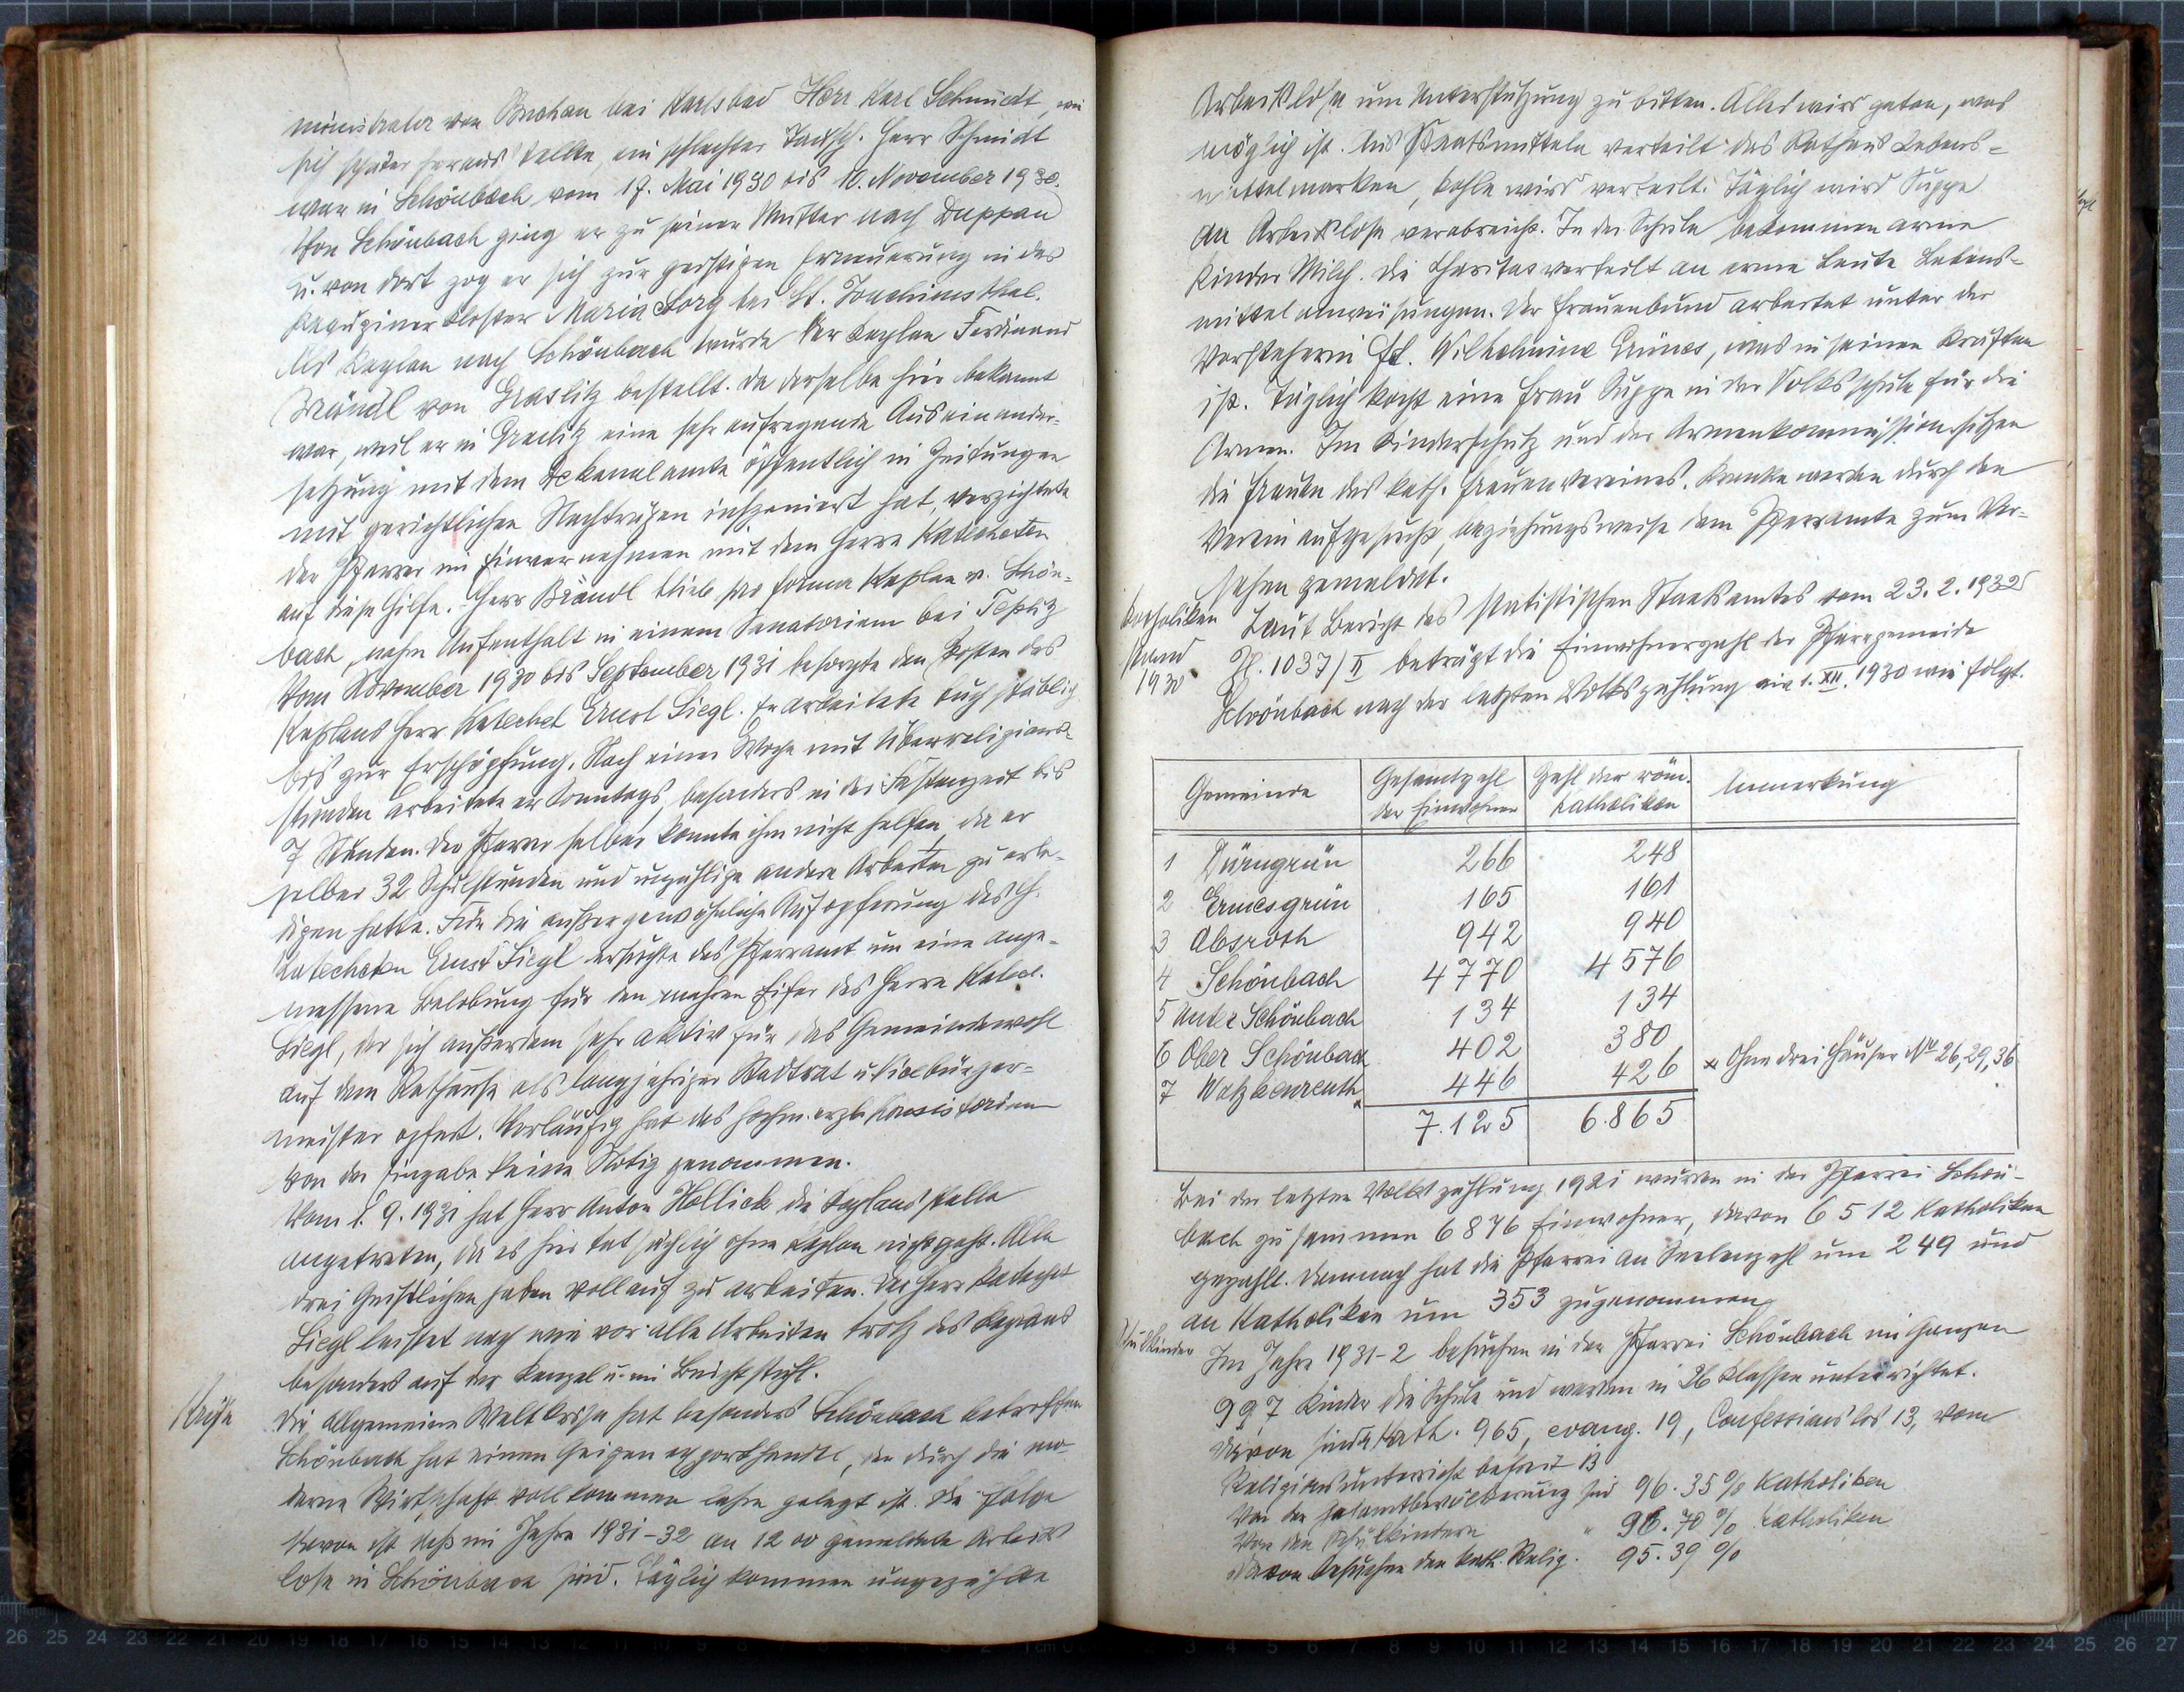 ministrator von Buchau bei Karlsbad Herr Karl Schmidt, wie
sich später heraus stellte, ein schlechter Tausch. Herr Schmidt
war in Schönbach vom 17. Mai 1930 bis 10. November 1930.
Von Schönbach ging er zu seiner Mutter nach Duppau
u. von dort zog er sich zur geistigen Erneuerung in das
Kapuzinerkloster Maria Sorg bei St. Joachimsthal.
Als Kaplan nach Schönbach wurde der Kaplan Ferdinand
Brändl von Graslitz bestellt. Da derselbe hier bekannt
war, weil er in Graslitz eine sehr aufregende Auseinander-
setzung mit dem Dekanalamte öffentlich in Zeitungen
mit gerichtlichen Nachträgen inszeniert hat, verzichtete
der Pfarrer im Einvernehmen mit dem Herrn Katecheten
auf diese Hilfe. Herr Brändl blieb pro forma Kaplan v. Schön-
bach, nahm Aufenthalt in einem Sanatorium bei Teplitz
Vom November 1930 bis September 1931 besorgte den Posten des
Kaplans Herr Katechet Ernst Siegl. Er arbeitete buchstäblich
bis zur Erschöpfung. Nach einer Woche mit Überreligions-
stunden arbeitete er Sonntags, besonders in der Fastenzeit bis
7 Stunden. Der Pfarrer selber konnte ihm nicht helfen, da er
selber 32 Schulstunden und unzählige andere Arbeiten zu erle-
digen hatte. Für die außergewöhnliche Aufopferung des H.
Katecheten Ernst Siegl ersuchte das Pfarramt um eine ange-
messene Belobung für den wahren Eifer des Herrn Katech.
Siegl, der sich außerdem sehr aktiv für das Gemeindewohl
auf dem Rathause als langjähriger Stadtrat u. Vicebürger-
meister opfert. Vorläufig hat das hochw. erzb. Konsistorium
von der Eingabe keine Notiz genommen.
Vom 1. 9. 1931 hat Herr Anton Hollick die Kaplansstelle
angetreten, da es hier tatsächlich ohne Kaplan nicht geht. Alle
drei Geistlichen haben vollauf zu arbeiten. Der Herr Katechet
Siegl leistet nach wie vor alle Arbeiten trotz des Kaplans
besonders auf der Kanzel u. im Beichtstuhl.
Krise
Die allgemeine Weltkrise hat besonders Schönbach betroffen
Schönbach hat einen Geigenexporthandel, der durch die mo-
derne Wirtschaft vollkommen lahm gelegt ist. Die Folge
davon ist daß im Jahre 1931-32 an 1200 gemeldete Arbeits
lose in Schönbach sind. Täglich kommen ungezählte
Arbeitslose um Unterstützung zu bitten. Alles wird getan, was
möglich ist. Aus Staatsmitteln verteilt das Rathaus Lebens-
mittelmarken, Kohle wird verteilt. Täglich wird Suppe
an Arbeitslose verabreicht. In der Schule bekommen arme
Kinder Milch. Die Charitas verteilt an arme Leute Lebens-
mittelanweisungen. Der Frauenbund arbeitet unter der
Vorsteherin Wilhelmine Grünes, was in seinen Kräften
ist. Täglich kocht eine Frau Suppe in der Volksschule für die
Armen. Im Kinderschutz und der Armenkommission sitzen
die Frauen des kath. Frauenvereines. Kranke werden durch den
Verein aufgesucht, beziehungsweise dem Pfarramte zum Ver-
sehen gemeldet.
Katholiken
stand
1930
Laut Bericht des statistischen Staatsamtes vom 23. 2. 1932
Zl. 1037/II beträgt die Einwohnerzahl der Pfarrgemeinde
Schönbach nach der letzten Volkszählung am 1. XII. 1930 wie folgt.
Gemeinde Gesamtzahl der Einwohner Zahl der röm. Katholiken Anmerkung
1 Dürngrün 266 248
2 Ermesgrün 165 161
3 Absroth 942 940
4 Schönbach 4770 4576
5 Unter Schönbach 134 134
6 Ober Schönbach 402 380
7 Watzkenreuth × 446 426 × Ohne drei Häuser No 26, 29, 36
7.125 6.865
Bei der letzten Volkszählung 1921 wurden in der Pfarrei Schön-
bach zusammen 6876 Einwohner, davon 6512 Katholiken
gezählt. Demnach hat die Pfarrei an Seelenzahl um 249 und
an Katholiken um 353 zugenommen
Schulkinder
Im Jahre 1931-2 besuchen in der Pfarrei Schönbach im Ganzen
997 Kinder die Schule und werden in 26 Klassen unterrichtet.
Davon sind kath. 965, evang. 19, Confessionslos 13, vom
Religionsunterricht befreit 13
Von der Gesamtbevölkerung sind 96.35% Katholiken
Von den Schulkindern " 96.70% Katholiken
Davon besuchen den kath. Relig. 95.39%